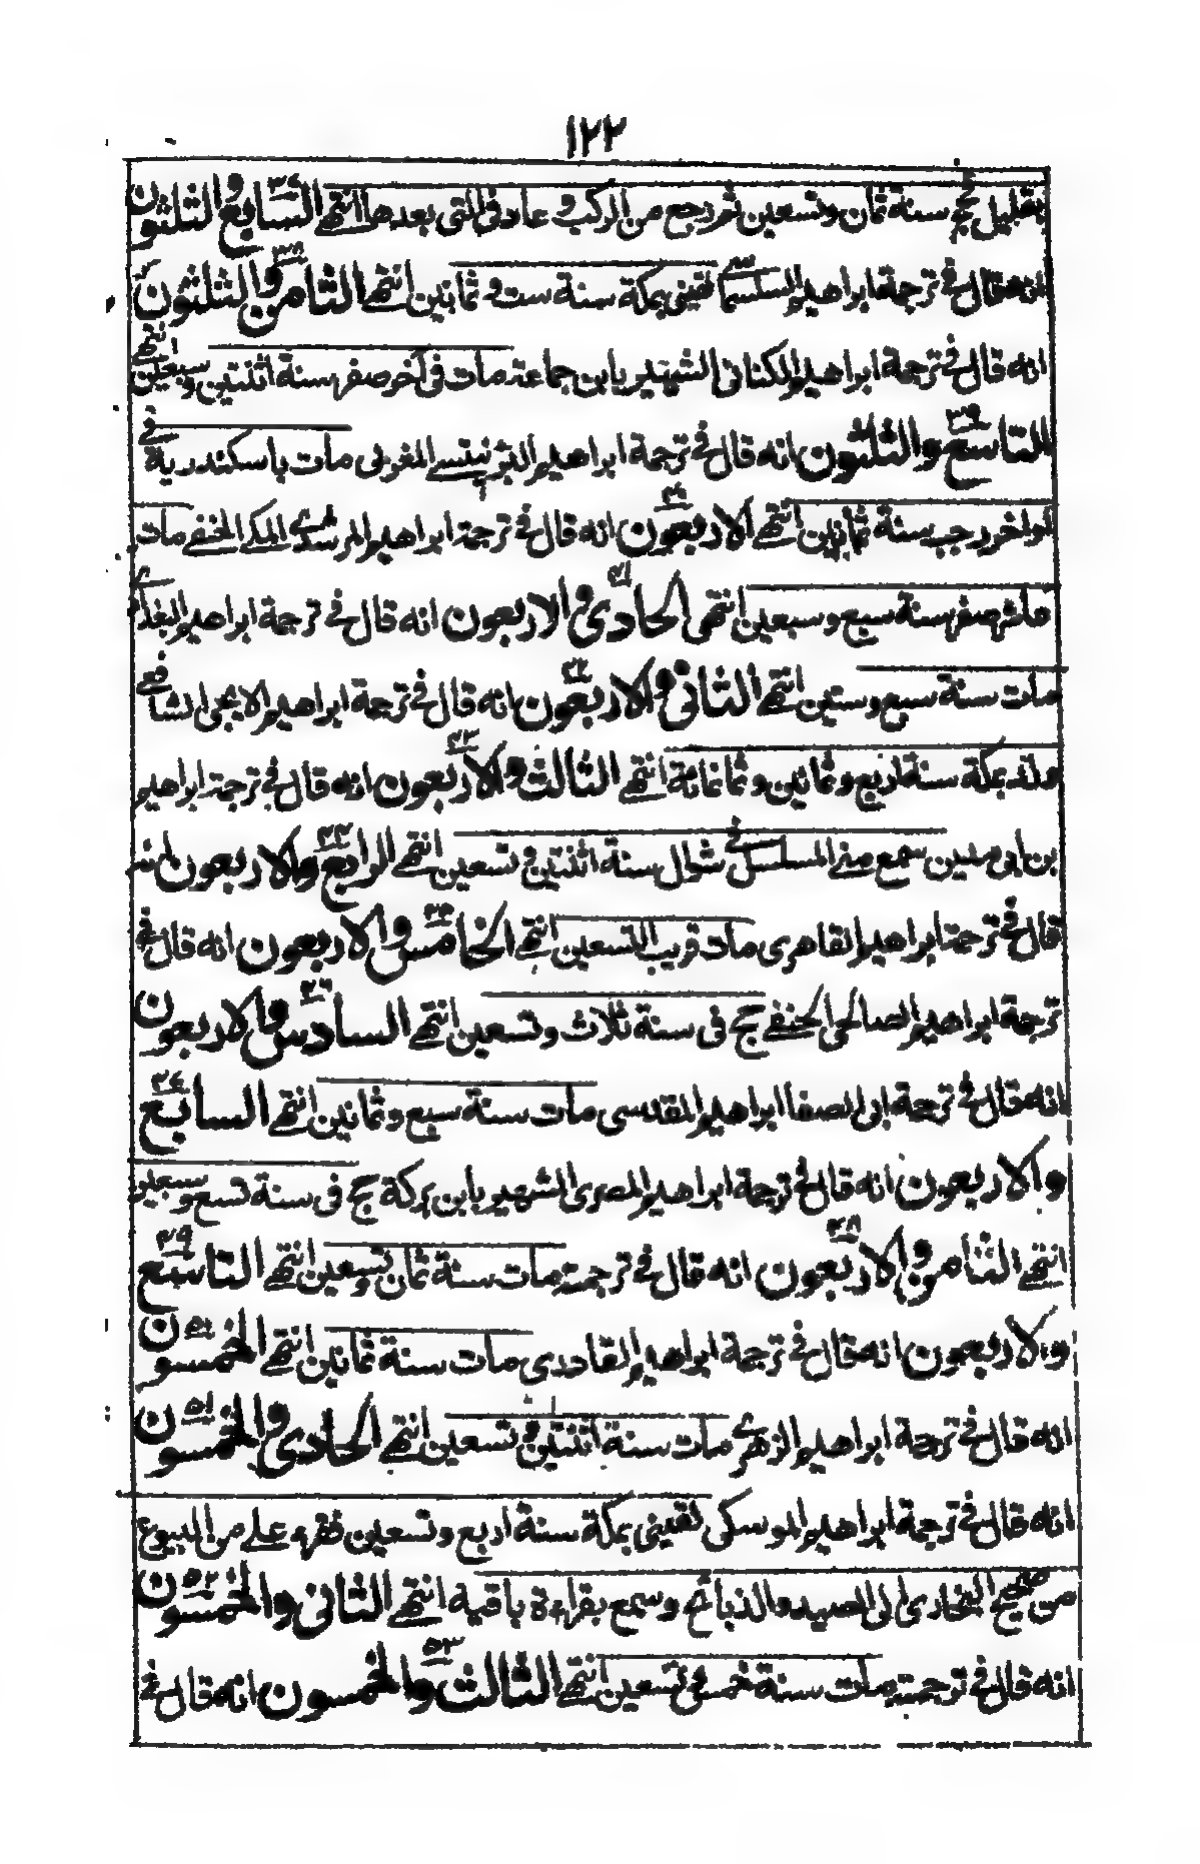 ١٢٢
بقليل حج سنة ثمان وتسعين ثم رجع من الركب وعاد فى التى بعدها انتهے السابع والثلثون ٣٧
انه قال فے ترجمة ابراهيم السلسما لقينى بمكة سنة ست وثمانين انتهے الثامن والثلثون ٣٨
انه قال فے ترجمة ابراهيم الكنانى الشهير بابن جماعة مات فى آخر صفر سنة اثنتين وسبعين انتهے
التاسع والثلثون ٣٩ انه قال فے ترجمة ابراهيم المغربى مات باسكندرية فے
اواخر رجب سنة ثمانين انتهے الاربعون ٤٠ انه قال فے ترجمة ابراهيم المرشدے المكے الحنفے مات
صفر سنة سبع وسبعين انتهى الحادى والاربعون ٤١ انه قال فے ترجمة ابراهيم البغدادے
مات سنة سبع وستين انتهے الثانى والاربعون ٤٢ انه قال فے ترجمة ابراهيم الايجى الشافعے
ولد بمكة سنة اربع وثمانين وثمانمائة انتهے الثالث والاربعون ٤٣ انه قال فے ترجمة ابراهيم
بن ابى سمع منے المسلسل فے شوال سنة اثنتين وتسعين انتهے الرابع والاربعون ٤٤ انه
قال فے ترجمة ابراهيم القاهرى مات قريب التسعين انتهے الخامس والاربعون ٤٥ انه قال فے
ترجمة ابراهيم الصالحى الحنفے حج فى سنة ثلاث وتسعين انتهے السادس والاربعون ٤٦
انه قال فے ترجمة ابى الصفا ابراهيم المقدسى مات سنة سبع وثمانين انتهے السابع ٤٧
والاربعون انه قال فے ترجمة ابراهيم المصرى الشهير بابن بركة حج فى سنة تسع وسبعين
انتهے الثامن والاربعون ٤٨ انه قال فے ترجمة مات سنة ثمان وتسعين انتهے التاسع ٤٩
والاربعون انه قال فے ترجمة ابراهيم القادرى مات سنة ثمانين انتهے الخمسون ٥٠
انه قال فے ترجمة ابراهيم الزهرے مات سنة اثنتين وتسعين انتهے الحادى والخمسون ٥١
انه قال فے ترجمة ابراهيم الموسكى لقينى بمكة سنة اربع وتسعين فقرء علے من البيوع
من صحيح البخارى الى الصيد والذبائح وسمع بقراءة باقيه انتهے الثانى والخمسون ٥٢
انه قال فے ترجمة مات سنة خمس وتسعين انتهے الثالث والخمسون ٥٣ انه قال فے